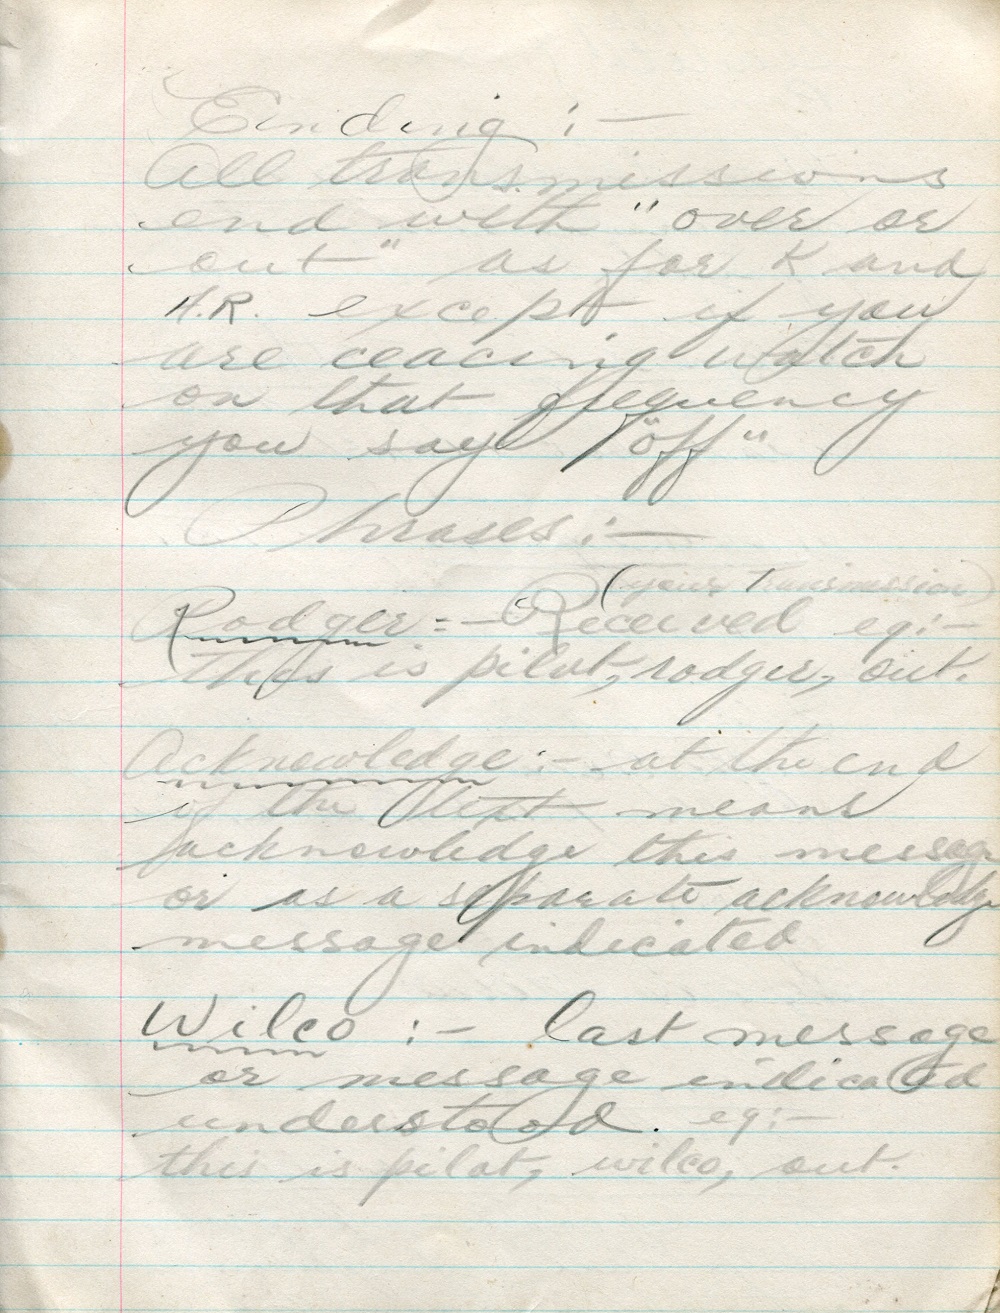 Ending :—
All transmissions
end with "over or
out" as for K and
A.R. except if you
are ceacing watch
on that frequency
you say "off"
Phrases :—
(your transmission)
Rodger :— Received eg:—
this is pilot, rodger, out.
Acknowledge :— at the end
of the text means
acknowledge this message
or as a separate acknowledge
message indicated
Wilco :— last message
or message indicated
understood. eg:—
this is pilot, wilco, out.